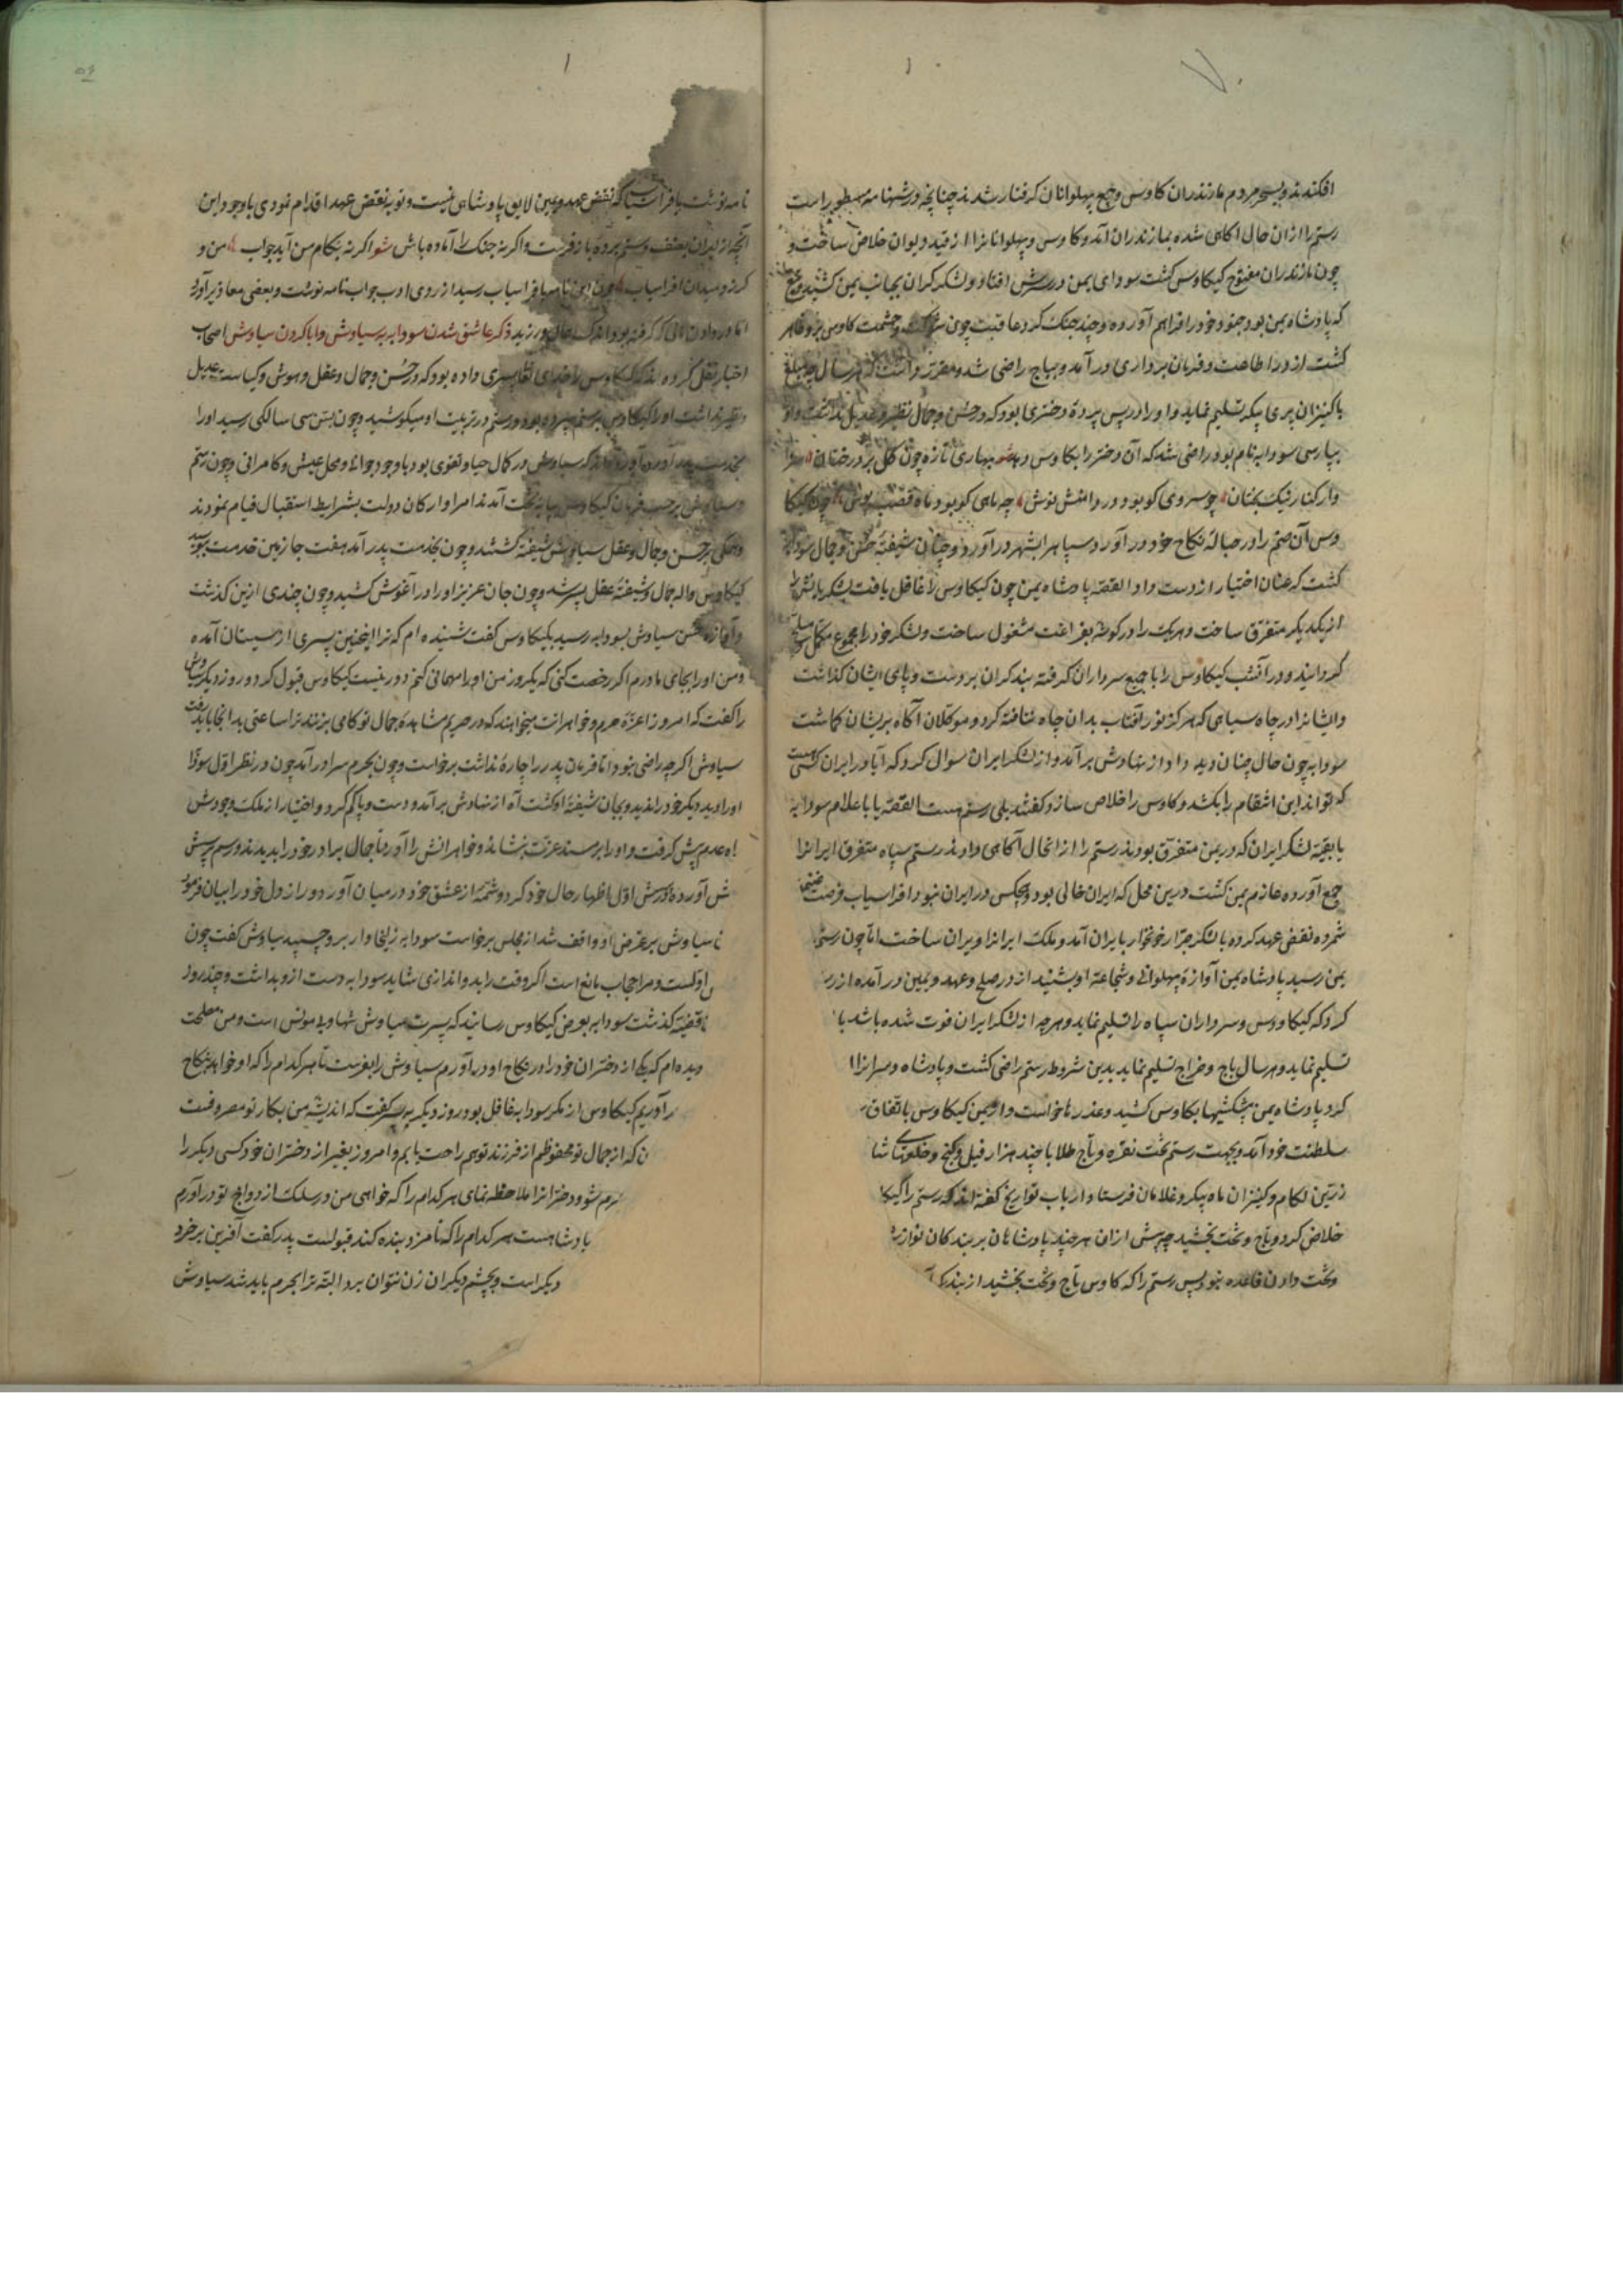 افکندند و بسحر مردم مازندران کاوس و جمیع پهلوانان گرفتار شدند چنانچه در شهنامه مسطور است
رستم را ازان حال آکاهی شده بمازندران آمد و کاوس و پهلوانانرا از قید دیوان خلاص ساخت و
چون مازندران مفتوح کیکاوس کشت سودای یمن در سرش افتاد و لشکر کران بجانب یمن کشید
که پادشاه یمن بود جنود خود را فراهم آورده و چند جنک کرد عاقبت چون شوکت و حشمت کاوس برو ظاهر
کشت از در اطاعت و فرمان برداری در آمد و بباج راضی شد و مقرر داشت که هر سال چند مبلغ
با کنیزان پری پیکر تسلیم نماید و او را در پس پرده دختری بود که در حسن و جمال نظیر و عدیل نداشت و او
بپارسی سودابه نام بود راضی شد که آن دختر را بکاوس دهد شعر بهاری تازه چون گل بر درختان سزا
وار کنار نیک بختان چو سروی کو بود در دامنش نوش چه ماهی کو بود ماه قصب پوش چون کیکا
وس آن صنم را در حباله نکاح خود در آورد و سپاه را بشهر در آورد و چنان شیفته حسن و جمال سودابه
کشت که عنان اختیار از دست داد القصه پادشاه یمن چون کیکاوس را غافل یافت لشکریانش را
از یکدیکر متفرق ساخت و هریک را در کوشه بفراغت مشغول ساخت و لشکر خود را مجموع مکمل
کردانید و در آنشب کیکاوس را با جمیع سرداران کرفته بند کران بر دست و پای ایشان کذاشت
و ایشانرا در چاه سیاهی که هرکز نور آفتاب بدان چاه نتافته کرد و موکلان آکاه بریشان کماشت
سودابه چون حال چنان دید داد از نهادش برآمد و از لشکر ایران سوال کرد که آیا در ایران کسی هست
که تواند این انتقام را بکشد و کاوس را خلاص سازد کفتند بلی رستم هست القصه یا باعلام سودابه
یا بقیه لشکر ایران که در یمن متفرق بودند رستم را از انحال آکاهی دادند رستم سپاه متفرق ایرانرا
جمع آورده عازم یمن کشت درین محل که ایران خالی بود و هیچکس در ایران نبود افراسیاب فرصت غنیمت
شمرده نقض عهد کرده با لشکر جرار خونخوار بایران آمد و ملک ایرانرا ویران ساخت اما چون رستم
بیمن رسید پادشاه یمن آوازه پهلوانی و شجاعت او بشنید از در صلح و عهد و یمین در آمده از
کرد که کیکاوس و سرداران سپاه را تسلیم نماید و هرچه از لشکر ایران فوت شده باشد با
تسلیم نماید و هر سال باج و خراج تسلیم نماید بدین شروط رستم راضی کشت و پادشاه و سرانرا
کرد پادشاه یمن پیشکشیها بکاوس کشید و عذرها خواست و از یمن کیکاوس باتفاق
سلطنت خود آمد و بجهت رستم تخت نقره و تاج طلا با چند هزار فیل و کنج و خلعتها
زرین لکام و کنیزان ماه پیکر و غلامان فرستاد ارباب تواریخ کفته اند که رستم را کیکا
خلاص کرد و تاج و تخت بخشید چه پیش ازان هرچند پادشاهان بر بندکان نوازش
و تخت دادن قاعده نبود پس رستم را که کاوس تاج و تخت بخشید از بندکی
نامه نوشت بافراسیاب که نقض عهد و یمین لایق پادشاهی نیست و تو بر نقض عهد اقدام نمودی باوجود این
آنچه از ایران بعنف و ستم برده باز فرست و اکر نه جنک را آماده باش شعر اکر نه بکام من آید جواب من و
کرز و میدان افراسیاب چون این نامه بافراسیاب رسید از روی ادب جواب نامه نوشت و بعضی معاذیر آورد
اما در دادن مالی که کرفته بود اندک اهمال ورزید ذکر عاشق شدن سودابه بر سیاوش و ابا کردن سیاوش اصحاب
اخبار نقل کرده اند که کیکاوس را خدای تعالی پسری داده بود که در حسن و جمال و عقل و هوش و کیاست عدیل
و نظیر نداشت او را کیکاوس برستم سپرده بود و رستم در تربیت او میکوشید و چون بسن سی سالکی رسید او را
بخدمت پدر آورد آورده اند که سیاوش در کمال حیا و تقوی بود با وجود جوانی و محل عیش و کامرانی و چون رستم
و سیاوش برحسب فرمان کیکاوس بپایتخت آمدند امرا و ارکان دولت بشرایط استقبال قیام نمودند
و همکی بر حسن و جمال و عقل سیاوش شیفته کشتند و چون بخدمت پدر آمد هفت جا زمین خدمت بوسید
کیکاوس واله جمال و شیفته عقل پسر شد و چون جان عزیز او را در آغوش کشید و چون چندی ازین کذشت
و آوازه حسن سیاوش بسودابه رسید بکیکاوس کفت شنیده ام که ترا اینچنین پسری از سیستان آمده
و من او را بجای مادرم اکر رخصت کنی که یکروز من او را مهمانی کنم دور نیست کیکاوس قبول کرد و روز دیکر سیاوش
را کفت که امروز اعزه حرم و خواهرانت میخواهند که در حریم مشاهده جمال تو کامی بزنند ترا ساعتی بدانجا باید رفت
سیاوش اکر چه راضی نبود اما فرمان پدر را چاره نداشت برخاست و چون بحرم سرا در آمد چون در نظر اول سودابه
او را دید دیکر خود را ندید و بجان شیفته او کشت آه از نهادش برآمد و دست و پا کم کرد و اختیار از ملک وجودش
راه عدم پیش کرفت و او را بر مسند عزت بنشاند و خواهرانش را آورد تا جمال برادر خود را بدیدند و رسم پرسش
آورده در پیش اول اظهار حال خود کرد و شمه از عشق خود در میان آورد و راز دل خود را بیان فرمود
تا سیاوش بر غرض او واقف شد از مجلس برخاست سودابه زلیخاوار برو چسپید سیاوش کفت چون
اولست و مرا حجاب مانع است اکر وقت رابد و اندازی شاید سودابه دست ازو بداشت و چند روز
قضیه کذشت سودابه بعرض کیکاوس رسانید که پسرت سیاوش تنها و بی مونس است و من مصلحت
دیده ام که یکی از دختران خود را در نکاح او در آورم سیاوش را بفرست تا هر کدام را که او خواهد بنکاح
در آوریم کیکاوس از مکر سودابه غافل بود روز دیکر بپسر کفت که اندیشه من بکار تو مصروفست
که از جمال تو محظوظم از فرزند تو هم راحت یابم و امروز بغیر از دختران خود کسی دیکر را
حرم شو و دخترانرا ملاحظه نمای هر کدام را که خواهی من در سلک ازدواج تو در آورم
پادشاهست هر کدام را که نامزد بنده کند قبولست پدر کفت آفرین بر خرد
دیکر است و بچشم دیکران زن نتوان برد البته ترا بحرم باید شد سیاوش